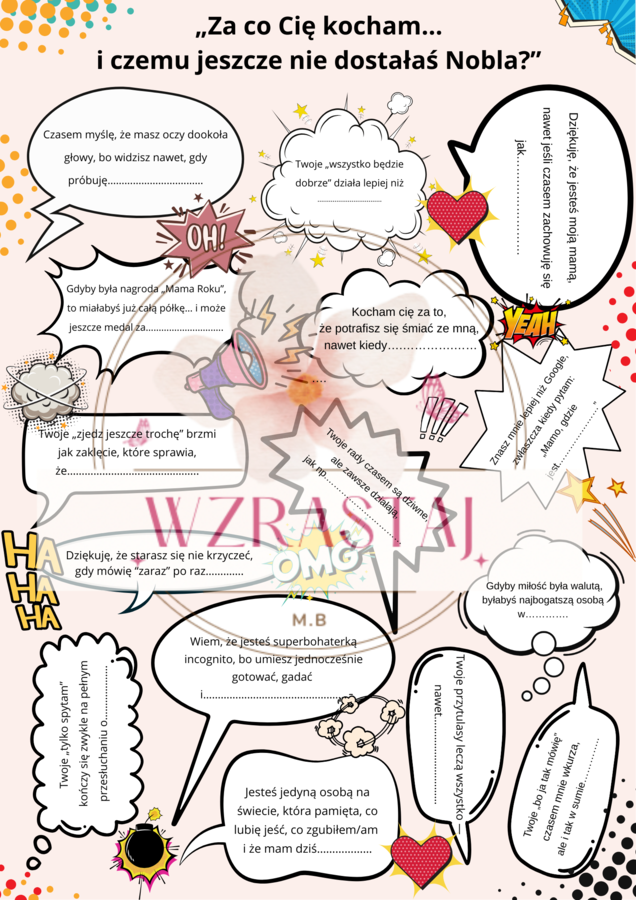 „Za co Cię kocham...
i czemu jeszcze nie dostałaś Nobla?”
Czasem myślę, że masz oczy dookoła
głowy, bo widzisz nawet, gdy
próbuję..................................
Twoje „wszystko będzie
dobrze” działa lepiej niż
..................................
Dziękuję, że jesteś moją mamą,
nawet jeśli czasem zachowuję się
jak..................................
OH!
Gdyby była nagroda „Mama Roku”,
to miałabyś już całą półkę... i może
jeszcze medal za............................
Kocham cię za to,
że potrafisz się śmiać ze mną,
nawet kiedy……………………
….
YEAH
Znasz mnie lepiej niż Google,
zwłaszcza kiedy pytam:
„Mamo, gdzie
jest……………”
Twoje „zjedz jeszcze trochę” brzmi
jak zaklęcie, które sprawia,
że............................................
Twoje rady czasem są dziwne,
ale zawsze działają,
jak np……………………
WZRASTAJ
M.B
HA
HA
HA
Dziękuję, że starasz się nie krzyczeć,
gdy mówię “zaraz” po raz.............
OMG
Gdyby miłość była walutą,
byłabyś najbogatszą osobą
w………….
Wiem, że jesteś superbohaterką
incognito, bo umiesz jednocześnie
gotować, gadać
i..................................................
Twoje „tylko spytam”
kończy się zwykle na pełnym
przesłuchaniu o..................
Twoje przytulasy leczą wszystko —
nawet……………………
Twoje „bo ja tak mówię”
czasem mnie wkurza,
ale i tak w sumie……………
Jesteś jedyną osobą na
świecie, która pamięta, co
lubię jeść, co zgubiłem/am
i że mam dziś..................